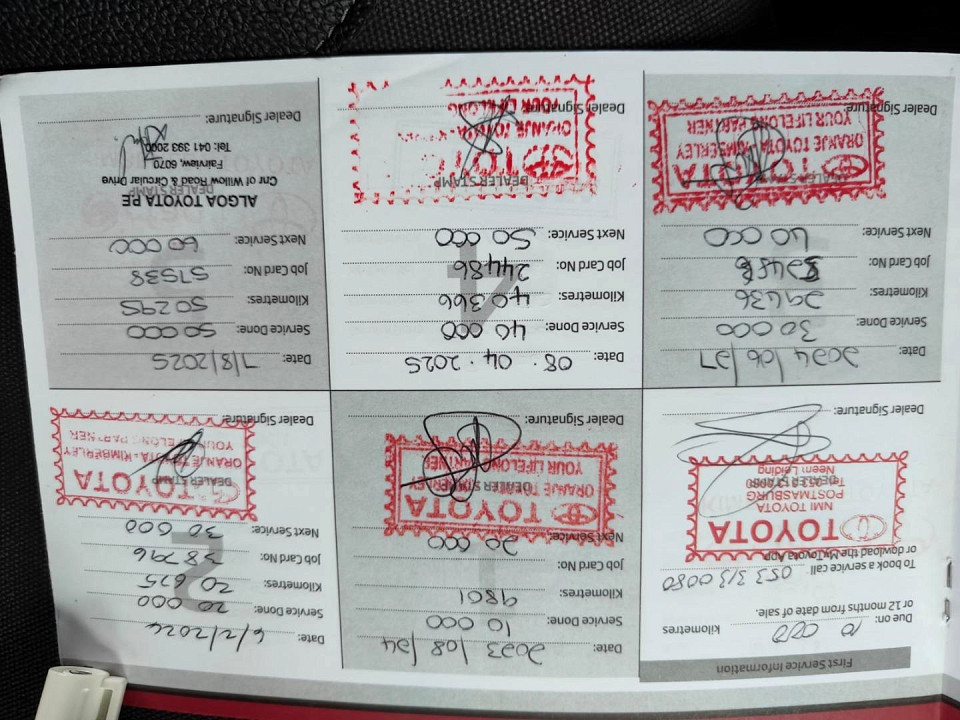 First Service Information
Due on: 10 000 kilometres
or 12 months from date of sale.
To book a service call 053 313 0080
or dowload the MyToyota App
TOYOTA
NMI TOYOTA
POSTMASBURG
Neem Leiding
Dealer Signature:
Date: 2023/08/24
Service Done: 10 000
Kilometres: 9801
1
Job Card No:
Next Service: 20 000
TOYOTA
DEALER STAMP
ORANJE TOYOTA - KIMBERLEY
YOUR LIFELONG PARTNER
Dealer Signature:
Date: 6/2/2024
Service Done: 20 000
Kilometres: 20 675
2
Job Card No: 38796
Next Service: 30 000
TOYOTA
DEALER STAMP
ORANJE TOYOTA - KIMBERLEY
YOUR LIFELONG PARTNER
Dealer Signature:
Date: 2024/06/27
Service Done: 30 000
Kilometres: 29636
Job Card No:
Next Service: 40 000
TOYOTA
ORANJE TOYOTA - KIMBERLEY
YOUR LIFELONG PARTNER
Dealer Signature:
Date: 08.04.2025
Service Done: 40 000
Kilometres: 40366
4
Job Card No: 24486
Next Service: 50 000
DEALER STAMP
ORANJE TOYOTA
YOUR LIFELONG
Dealer Signature:
Date: 7/8/2025
Service Done: 50 000
Kilometres: 50295
Job Card No: 57538
Next Service: 60 000
ALGOA TOYOTA P.E
DEALER STAMP
Cnr of Willow Road & Circular Drive
Fairview, 6070
Tel: 041 393 2000
Dealer Signature: